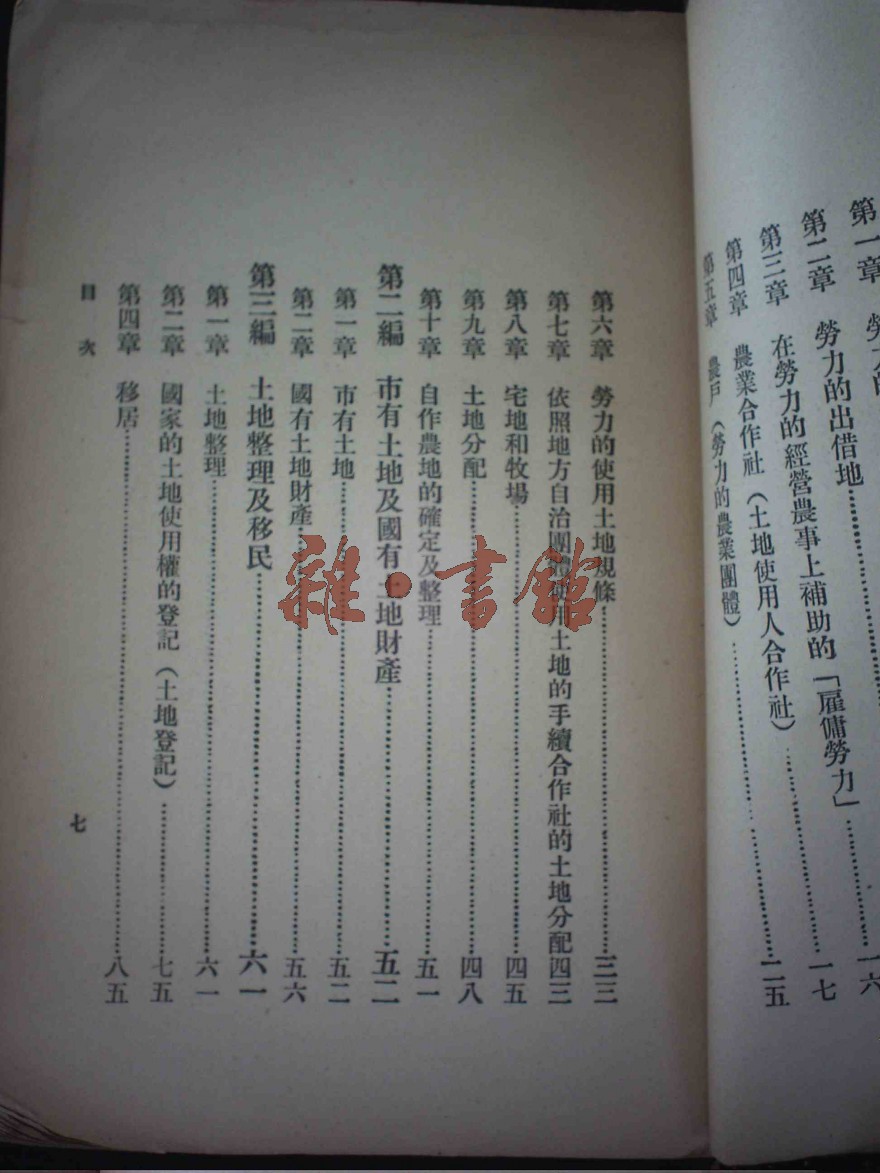 第一章 勞力的
第二章 勞力的出借地
第三章 在勞力的經營農事上補助的「雇傭勞力」……一六
第四章 農業合作社(土地使用人合作社)……一七
第五章 農戶(勞力的農業團體)……二五
第六章 勞力的使用土地規條……三三
第七章 依照地方自治團體使用土地的手續合作社的土地分配四三
第八章 宅地和牧場……四五
第九章 土地分配……四八
第十章 自作農地的確定及整理……五一
第二編 市有土地及國有土地財產……五二
第一章 市有土地……五二
第二章 國有土地財產……五六
第三編 土地整理及移民……六一
第一章 土地整理……六一
第二章 國家的土地使用權的登記(土地登記)……七五
第四章 移居……八五
目次
七
雜·書館